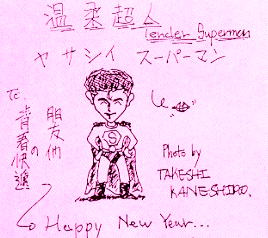 温柔超人
Tender Superman
ヤサシイ スーパーマン
朋友們
の
Photo by
TAKESHI
KANESHIRO.
Happy New Year...